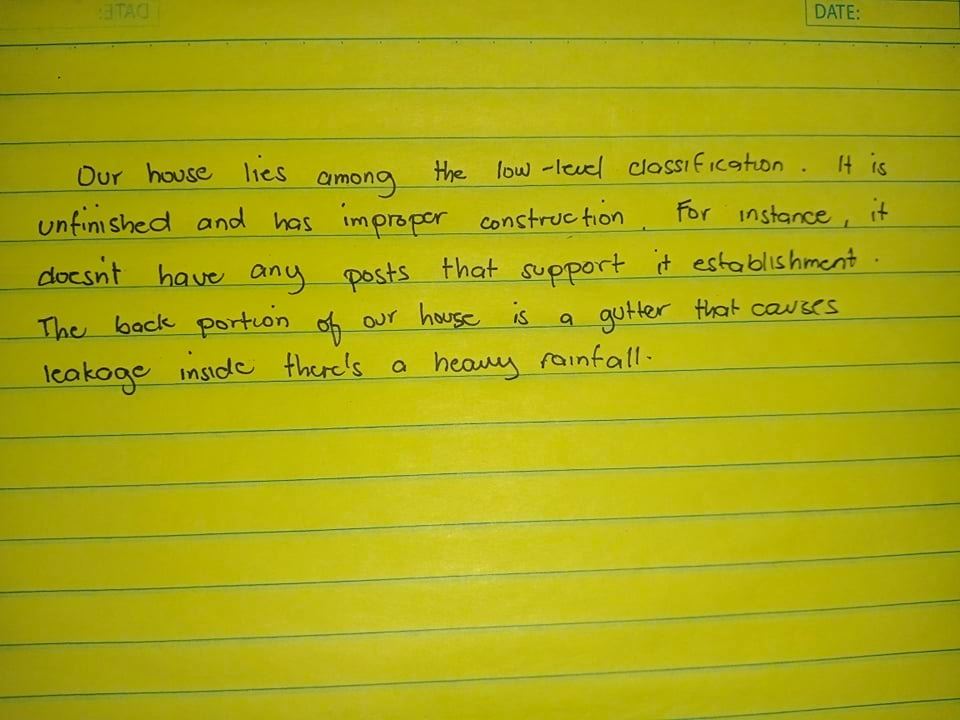 DATE:
Our house lies among the low-level classification. It is
unfinished and has improper construction. For instance, it
doesn't have any posts that support it establishment.
The back portion of our house is a gutter that causes
leakage inside there's a heavy rainfall.